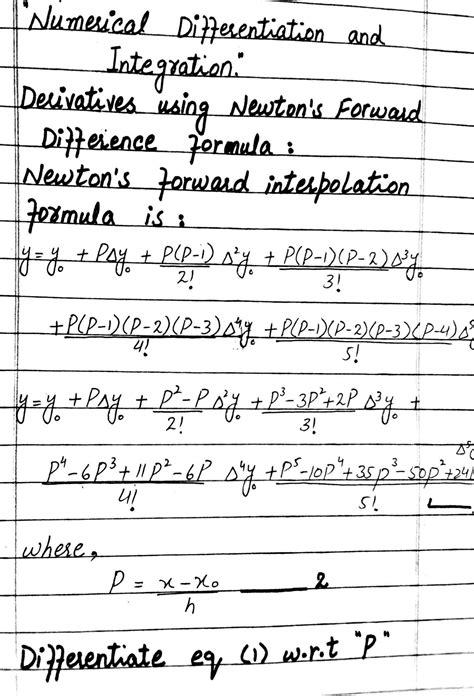 "Numerical Differentiation and
Integration."
Derivatives using Newton's Forward
Difference formula :
Newton's forward interpolation
formula is :
y = y₀ + PΔy₀ + P(P-1)/2! Δ²y₀ + P(P-1)(P-2)/3! Δ³y₀
+ P(P-1)(P-2)(P-3)/4! Δ⁴y₀ + P(P-1)(P-2)(P-3)(P-4)/5! Δ⁵
y = y₀ + PΔy₀ + P²-P/2! Δ²y₀ + P³-3P²+2P/3! Δ³y₀ +
P⁴-6P³+11P²-6P/4! Δ⁴y₀ + P⁵-10P⁴+35P³-50P²+24P/5! Δ⁵
where,
P = x-x₀/h — 2
Differentiate eq (1) w.r.t "P"